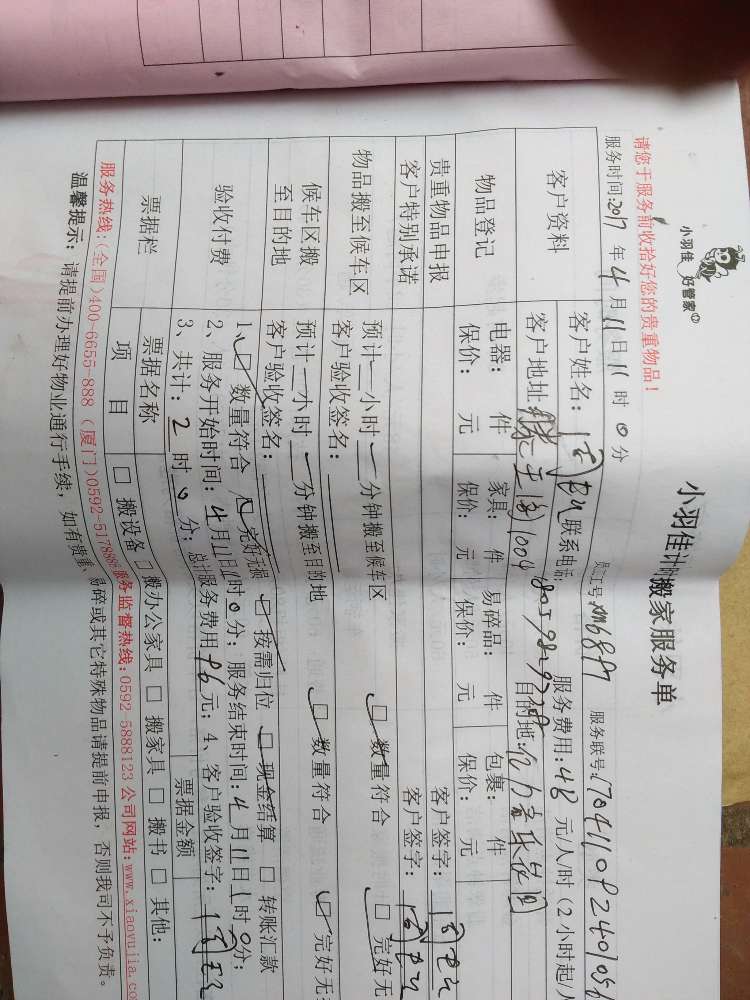 小羽佳 好管家
小羽佳计时搬家服务单
请您于服务前收拾好您的贵重物品！
员工号: 服务联号:
服务时间:2017 年 4 月 11 日 11 时 0 分 服务费用: 48 元/人/时 (2小时起/
客户资料
客户姓名: 联系电话:
客户地址: 目的地:
物品登记
电器: 件 家具: 件 易碎品: 件 包裹: 件
保价: 元 保价: 元 保价: 元 保价: 元
贵重物品申报 客户签字:
客户特别承诺 客户签字:
物品搬至候车区
预计 小时 分钟搬至候车区 □ 数量符合 □ 完好无
客户验收签名:
候车区搬至目的地
预计 小时 分钟搬至目的地 □ 数量符合 □ 完好无
客户验收签名:
验收付费
1、□ 数量符合 □ 完好无损 □ 按需归位 □ 现金结算 □ 转账汇款
2、服务开始时间: 4 月 11 日 时 0 分; 服务结束时间: 4 月 11 日 1 时 0 分;
3、共计: 2 时 0 分; 总计服务费用 96 元; 4、客户验收签字:
票据栏
票据名称 票据金额
项 目 □ 搬设备 □ 搬办公家具 □ 搬家具 □ 搬书 □ 其他:
服务热线:(全国)400-6655-888 (厦门)0592-5178888 服务监督热线:0592 5888123 公司网站:www.xiaoyujia.com
温馨提示: 请提前办理好物业通行手续, 如有贵重、易碎或其它特殊物品请提前申报, 否则我司不予负责。